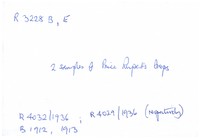 R 3228 B, E
2 samples of Prince Rupert's Drops
R 4032/1936 ; R 4029/1936 (negatives)
B 1912, 1913